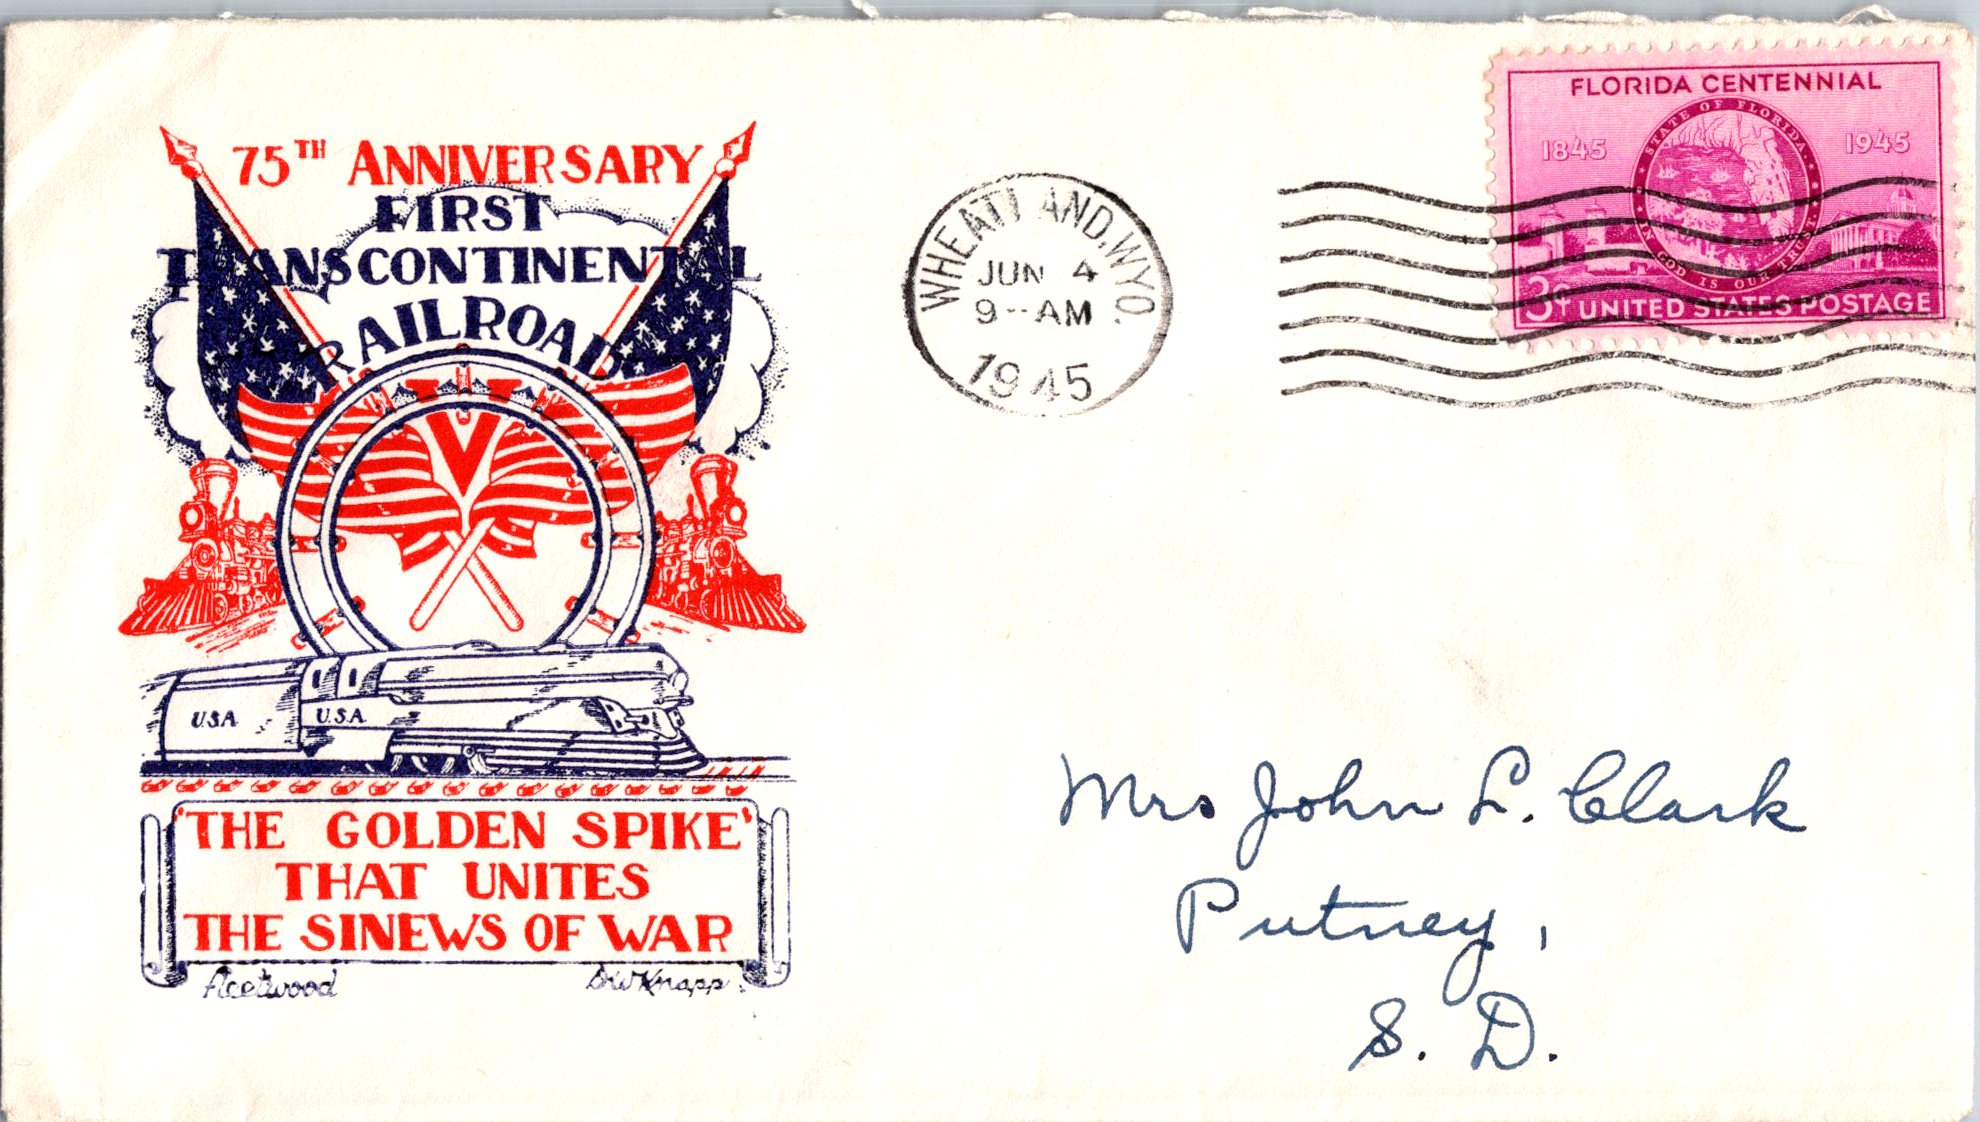 75TH ANNIVERSARY
FIRST
TRANSCONTINENTAL
RAILROAD
V
U.S.A
U.S.A
'THE GOLDEN SPIKE'
THAT UNITES
THE SINEWS OF WAR
Fleetwood
D.W. Knapp
WHEATLAND, WYO.
JUN 4
9--AM
1945
FLORIDA CENTENNIAL
1845
1945
STATE OF FLORIDA
IN GOD IS OUR TRUST
3¢ UNITED STATES POSTAGE
Mrs John L. Clark
Putney,
S. D.